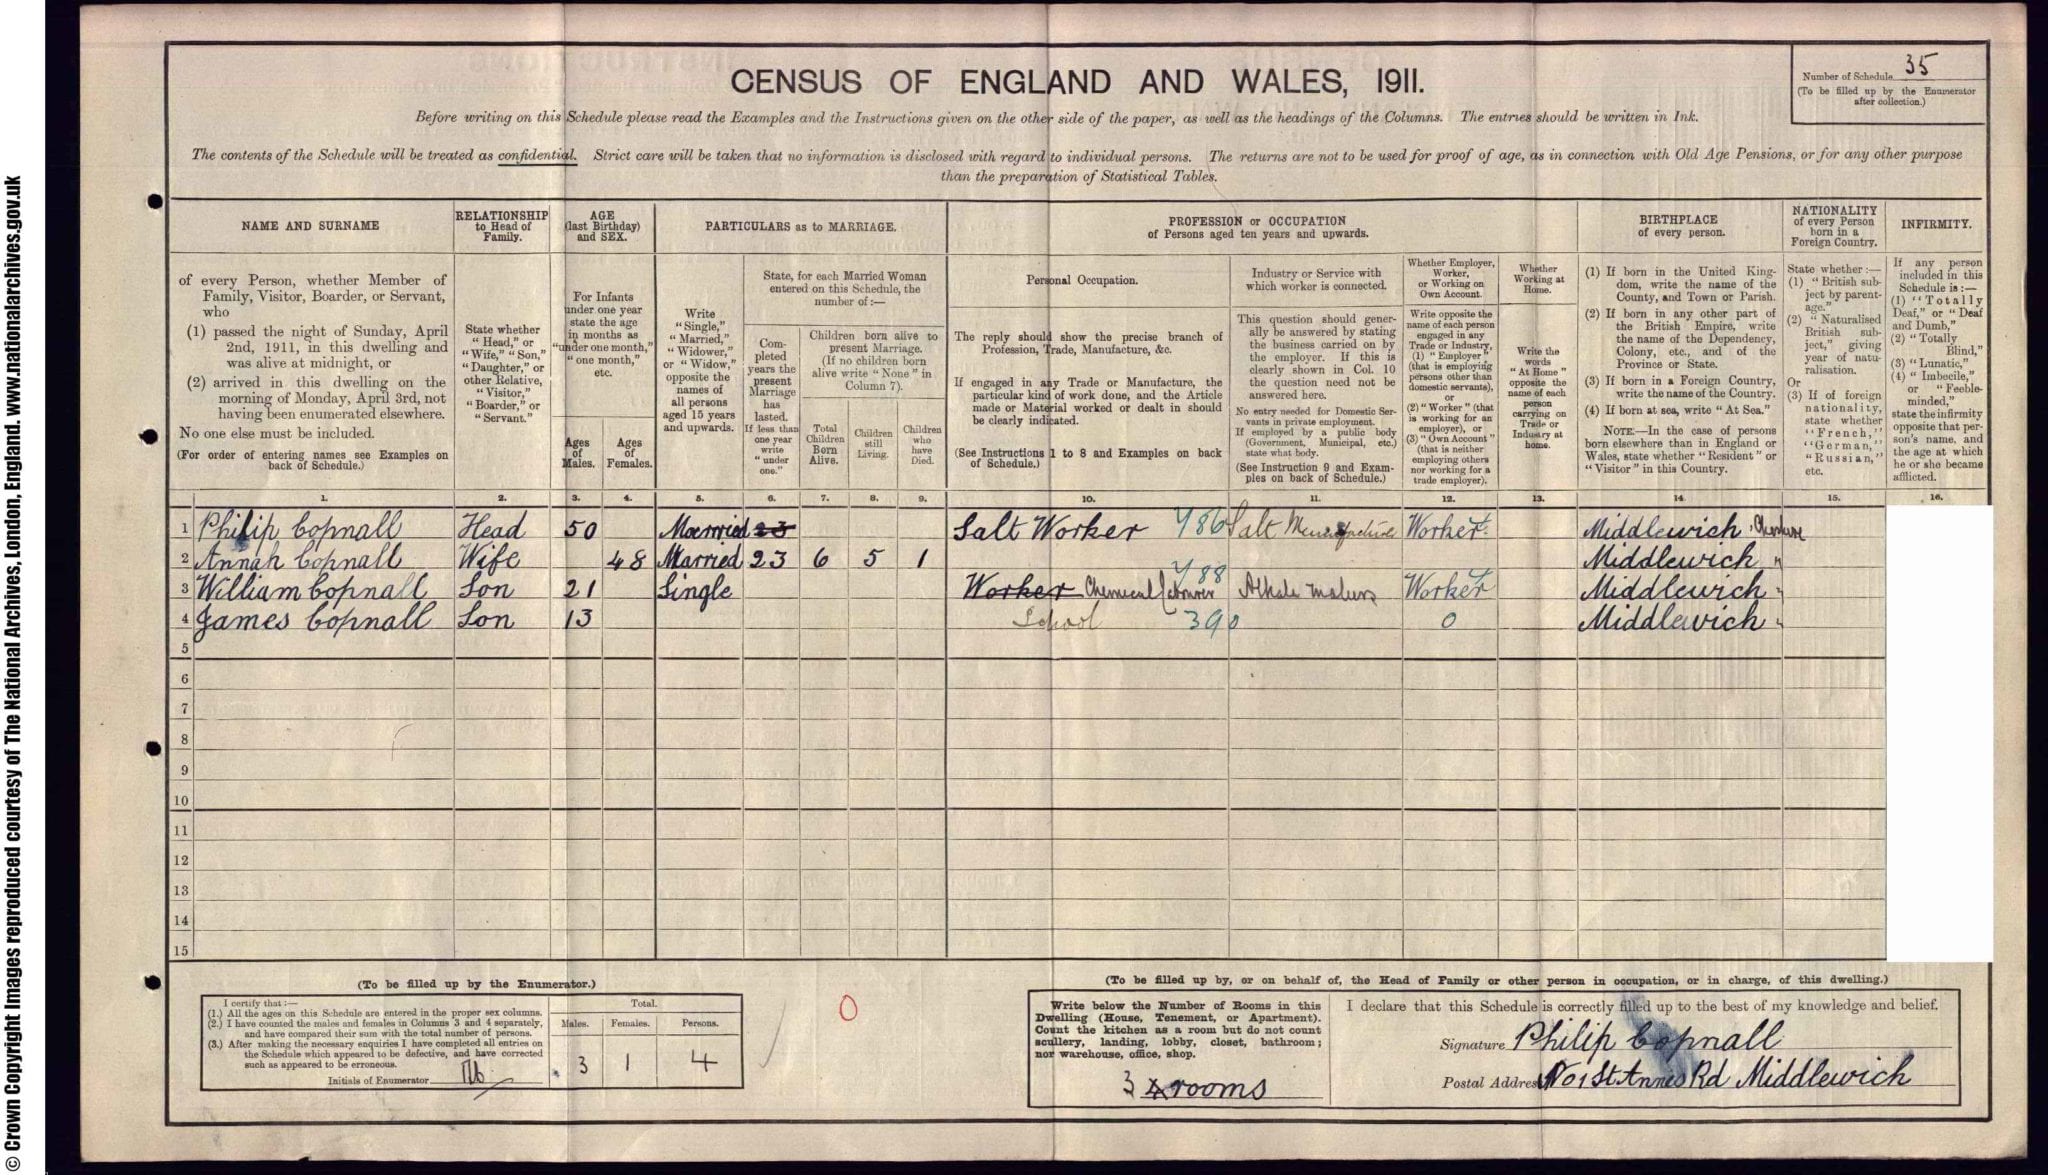 © Crown Copyright Images reproduced courtesy of The National Archives, London, England. www.nationalarchives.gov.uk
CENSUS OF ENGLAND AND WALES, 1911.
Number of Schedule 35
(To be filled up by the Enumerator
after collection.)
Before writing on this Schedule please read the Examples and the Instructions given on the other side of the paper, as well as the headings of the Columns. The entries should be written in Ink.
The contents of the Schedule will be treated as confidential. Strict care will be taken that no information is disclosed with regard to individual persons. The returns are not to be used for proof of age, as in connection with Old Age Pensions, or for any other purpose
than the preparation of Statistical Tables.
NAME AND SURNAME
of every Person, whether Member of
Family, Visitor, Boarder, or Servant,
who
(1) passed the night of Sunday, April
2nd, 1911, in this dwelling and
was alive at midnight, or
(2) arrived in this dwelling on the
morning of Monday, April 3rd, not
having been enumerated elsewhere.
No one else must be included.
(For order of entering names see Examples on
back of Schedule.)
RELATIONSHIP
to Head of
Family.
State whether
"Head," or
"Wife," "Son,"
"Daughter," or
other Relative,
"Visitor,"
"Boarder," or
"Servant."
AGE
(last Birthday)
and SEX.
For Infants
under one year
state the age
in months as
"under one month,"
"one month,"
etc.
Ages
of
Males.
Ages
of
Females.
PARTICULARS as to MARRIAGE.
Write
"Single,"
"Married,"
"Widower,"
or "Widow,"
opposite the
names of
all persons
aged 15 years
and upwards.
State, for each Married Woman
entered on this Schedule, the
number of:—
Com-
pleted
years the
present
Marriage
has
lasted.
If less than
one year
write
"under
one."
Children born alive to
present Marriage.
(If no children born
alive write "None" in
Column 7).
Total
Children
Born
Alive.
Children
still
Living.
Children
who
have
Died.
PROFESSION or OCCUPATION
of Persons aged ten years and upwards.
Personal Occupation.
The reply should show the precise branch of
Profession, Trade, Manufacture, &c.
If engaged in any Trade or Manufacture, the
particular kind of work done, and the Article
made or Material worked or dealt in should
be clearly indicated.
(See Instructions 1 to 8 and Examples on back
of Schedule.)
Industry or Service with
which worker is connected.
This question should gener-
ally be answered by stating
the business carried on by
the employer. If this is
clearly shown in Col. 10
the question need not be
answered here.
No entry needed for Domestic Ser-
vants in private employment.
If employed by a public body
(Government, Municipal, etc.)
state what body.
(See Instruction 9 and Exam-
ples on back of Schedule.)
Whether Employer,
Worker,
or Working on
Own Account.
Write opposite the
name of each person
engaged in any
Trade or Industry,
(1) "Employer"
(that is employing
persons other than
domestic servants),
or
(2) "Worker" (that
is working for an
employer), or
(3) "Own Account"
(that is neither
employing others
nor working for a
trade employer).
Whether
Working at
Home.
Write the
words
"At Home"
opposite the
name of each
person
carrying on
Trade or
Industry at
home.
BIRTHPLACE
of every person.
(1) If born in the United King-
dom, write the name of the
County, and Town or Parish.
(2) If born in any other part of
the British Empire, write
the name of the Dependency,
Colony, etc., and of the
Province or State.
(3) If born in a Foreign Country,
write the name of the Country.
(4) If born at sea, write "At Sea."
NOTE.—In the case of persons
born elsewhere than in England or
Wales, state whether "Resident" or
"Visitor" in this Country.
NATIONALITY
of every Person
born in a
Foreign Country.
State whether:—
(1) "British sub-
ject by parent-
age."
(2) "Naturalised
British sub-
ject," giving
year of natu-
ralisation.
Or
(3) If of foreign
nationality,
state whether
"French,"
"German,"
"Russian,"
etc.
INFIRMITY.
If any person
included in this
Schedule is:—
(1) "Totally
Deaf," or "Deaf
and Dumb,"
(2) "Totally
Blind,"
(3) "Lunatic,"
(4) "Imbecile,"
or "Feeble-
minded,"
state the infirmity
opposite that per-
son's name, and
the age at which
he or she became
afflicted.
1. 2. 3. 4. 5. 6. 7. 8. 9. 10. 11. 12. 13. 14. 15. 16.
1 Philip Copnall Head 50 Married 23 Salt Worker 486 Salt Manufacture Worker Middlewich Cheshire
2 Annah Copnall Wife 48 Married 23 6 5 1 Middlewich "
3 William Copnall Son 21 Single Worker Chemical Labourer 488 Alkali Worker Middlewich "
4 James Copnall Son 13 School 390 0 Middlewich "
5
6
7
8
9
10
11
12
13
14
15
(To be filled up by the Enumerator.)
I certify that:—
(1.) All the ages on this Schedule are entered in the proper sex columns.
(2.) I have counted the males and females in Columns 3 and 4 separately,
and have compared their sum with the total number of persons.
(3.) After making the necessary enquiries I have completed all entries on
the Schedule which appeared to be defective, and have corrected
such as appeared to be erroneous.
Initials of Enumerator
Total.
Males. Females. Persons.
3 1 4
0
(To be filled up by, or on behalf of, the Head of Family or other person in occupation, or in charge, of this dwelling.)
Write below the Number of Rooms in this
Dwelling (House, Tenement, or Apartment).
Count the kitchen as a room but do not count
scullery, landing, lobby, closet, bathroom;
nor warehouse, office, shop.
3 4 rooms
I declare that this Schedule is correctly filled up to the best of my knowledge and belief.
Signature Philip Copnall
Postal Address No 1 St Annes Rd Middlewich